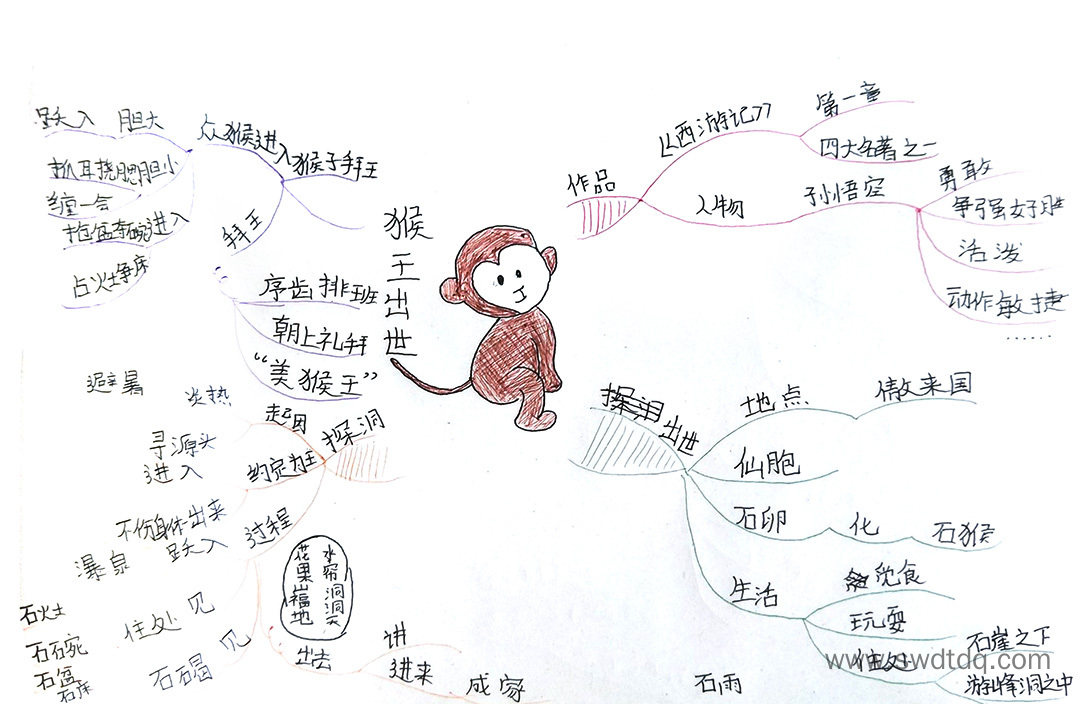 猴王出世
作品
《西游记》
第一章
四大名著之一
人物
孙悟空
勇敢
争强好胜
活泼
动作敏捷
……
出世
地点
傲来国
仙胞
石卵
化
石猴
生活
觅食
玩耍
住处
石崖之下
峰洞之中
www.swdtdq.com
探洞
起因
炎热
避暑
寻源头
约定为王
进入
出来
不伤身体
过程
跃入
瀑泉
见
住处
见
石碣
石火士
石碗
石盆
石床
花果山福地
水帘洞洞天
出去
讲
进来
成家
石雨
猴子拜王
众猴进入
胆大
跃入
胆小
抓耳挠腮
缠一会
进入
抱盆夺碗
占火士争床
拜王
序齿排班
朝上礼拜
“美猴王”